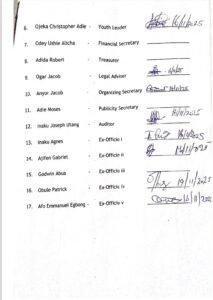 6. Ojeka Christopher Adie - Youth Leader 16/11/2025
7. Odey Ushie Abicha - Financial Secretary
8. Adida Robert - Treasurer
9. Ogar Jacob - Legal Adviser
10. Anyor Jacob - Organizing Secretary
11. Adie Moses - Publicity Secretary
12. Inaku Joseph Utang - Auditor
13. Inaku Agnes - Ex-Officio i
14. Ajifen Gabriel - Ex-Officio ii
15. Godwin Abua - Ex-Officio iii 19/11/2025
16. Obule Patrick - Ex-Officio iv
17. Afo Emmanuel Egbong - Ex-Officio v